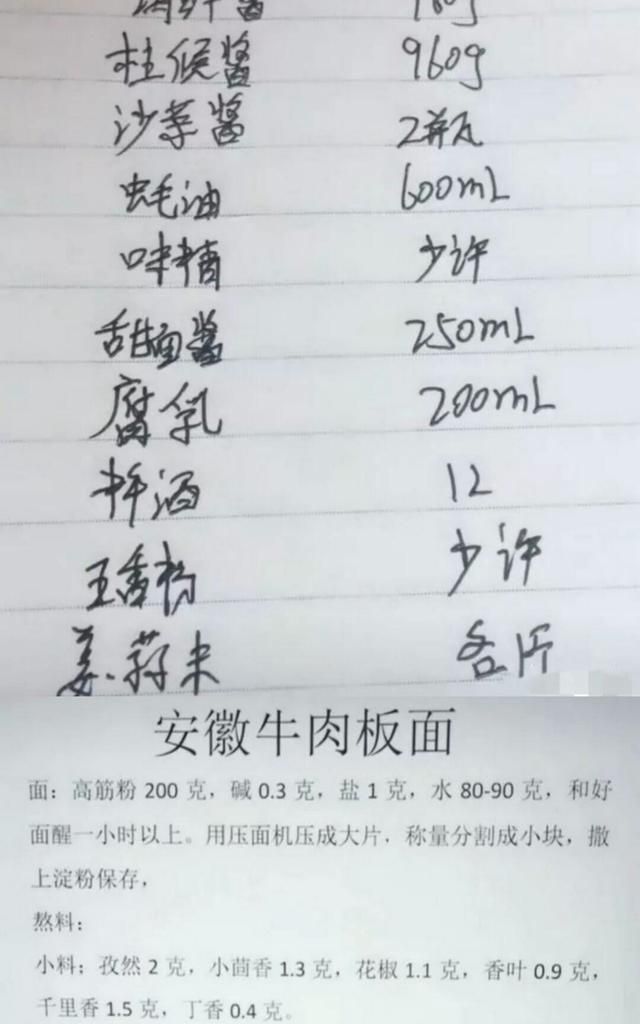 柱侯酱 960g
沙茶酱 2瓶
蚝油 600mL
味精 少许
甜面酱 250mL
腐乳 200mL
料酒 1L
五香粉 少许
姜.蒜末 各1斤
安徽牛肉板面
面：高筋粉 200 克，碱 0.3 克，盐 1 克，水 80-90 克，和好
面醒一小时以上。用压面机压成大片，称量分割成小块，撒
上淀粉保存，
熬料：
小料；孜然 2 克，小茴香 1.3 克，花椒 1.1 克，香叶 0.9 克，
千里香 1.5 克，丁香 0.4 克。